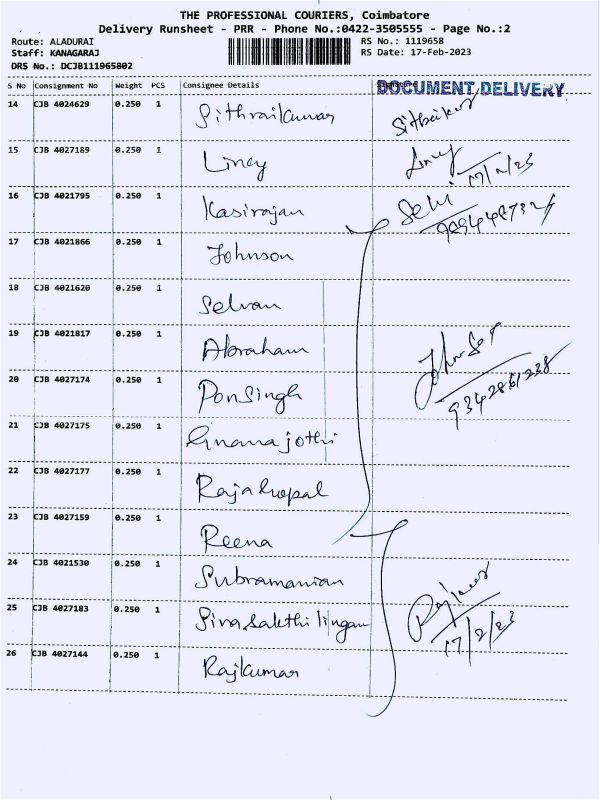 THE PROFESSIONAL COURIERS, Coimbatore
Delivery Runsheet - PRR - Phone No.:0422-3505555 - Page No.:2
Route: ALADURAI
Staff: KANAGARAJ
DRS No.: DCJB111965802
RS No.: 1119658
RS Date: 17-Feb-2023
S No Consignment No Weight PCS Consignee Details
DOCUMENT DELIVERY
14 CJB 4024629 0.250 1 Sithraikumar
15 CJB 4027189 0.250 1 Lincy
17/2/23
16 CJB 4021795 0.250 1 Kasirajan
Selvi
17 CJB 4021866 0.250 1 Johnson
18 CJB 4021620 0.250 1 Selvan
19 CJB 4021817 0.250 1 Abraham
20 CJB 4027174 0.250 1 Ponsingh
21 CJB 4027175 0.250 1 Gnanajothi
22 CJB 4027177 0.250 1 Rajahopal
23 CJB 4027159 0.250 1 Reena
24 CJB 4021530 0.250 1 Subramanian
25 CJB 4027183 0.250 1 Sivasakthilingam
17/2/23
26 CJB 4027144 0.250 1 Rajkumar